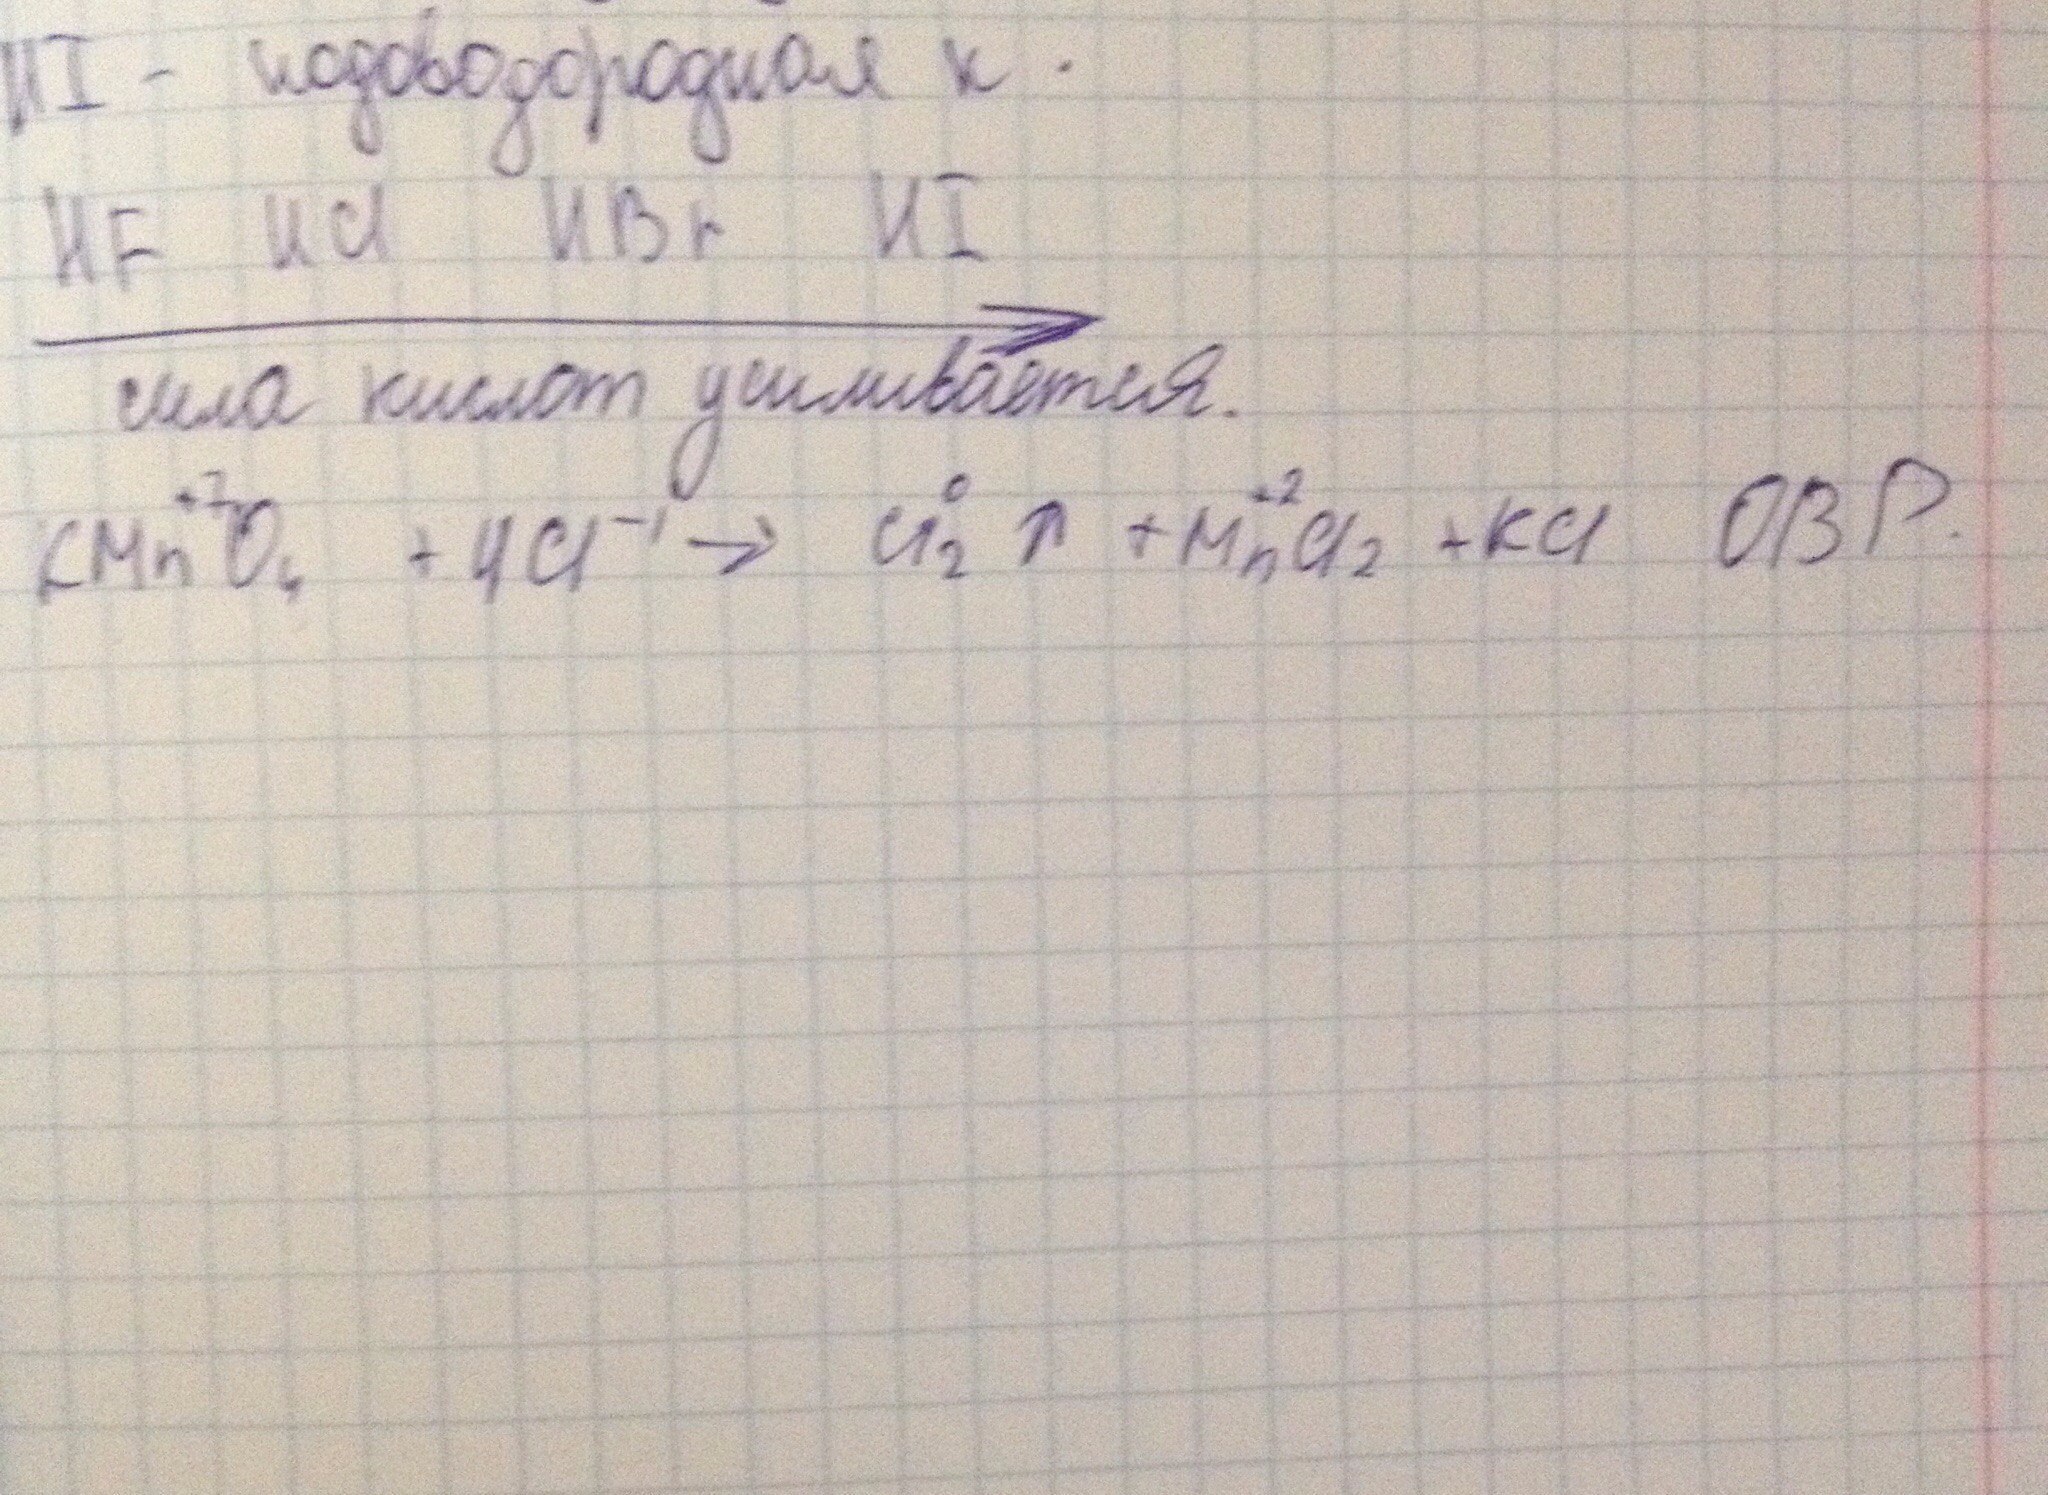 HI - иодоводородная к.
HF HCl HBr HI
сила кислот усиливается.
KMn⁺⁷O₄ + HCl⁻¹ → Cl₂⁰ ↑ + Mn⁺²Cl₂ + KCl ОВР.